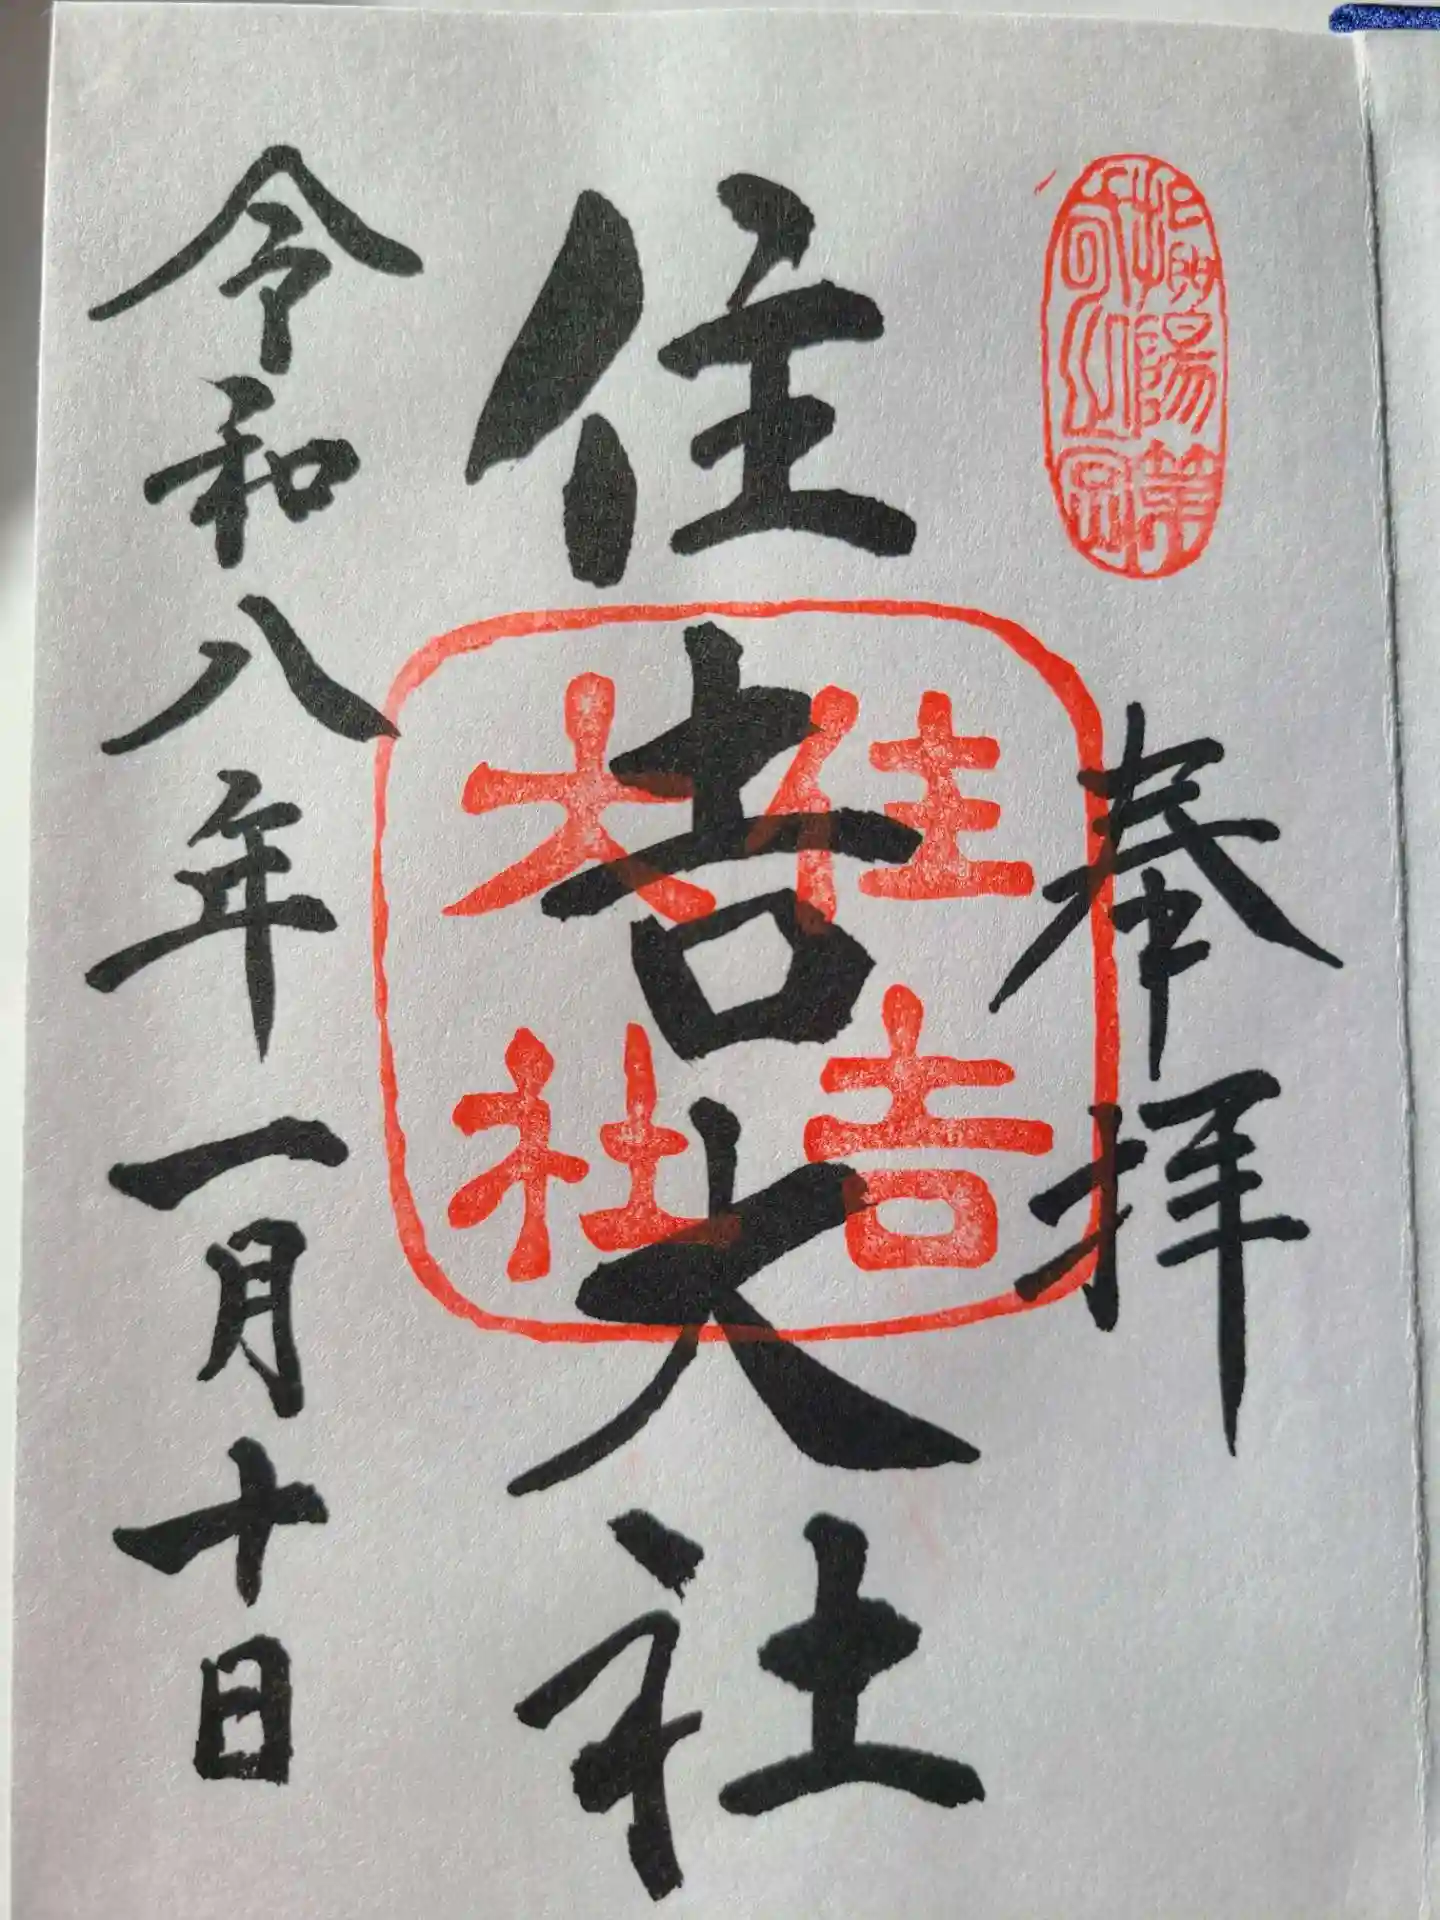 摂陽第
奉拝
住吉大社
住吉
大社
令和八年一月十日